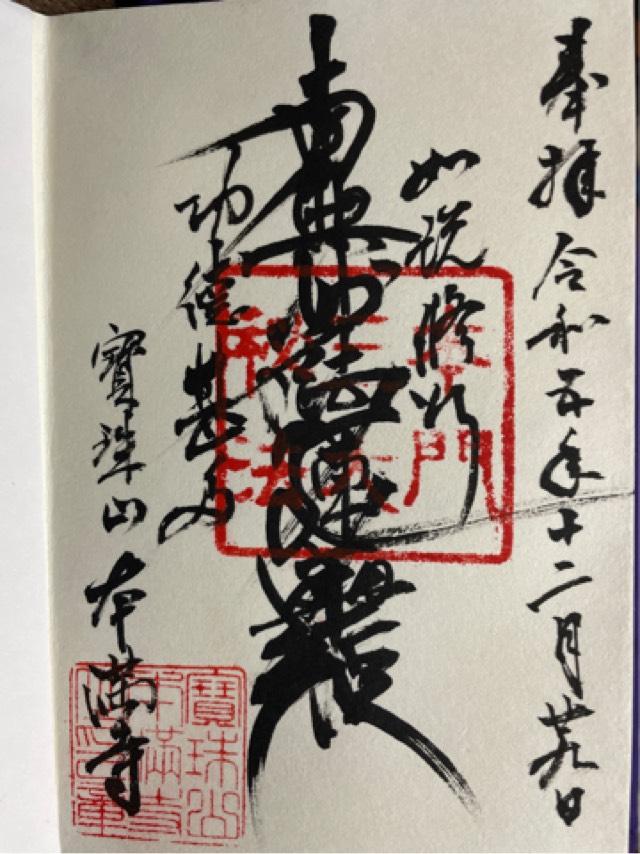 奉拝 令和五年十二月廿九日
如説修行
南無妙法蓮華経
功徳甚多
寶珠山
本満寺
寶珠山
本満寺